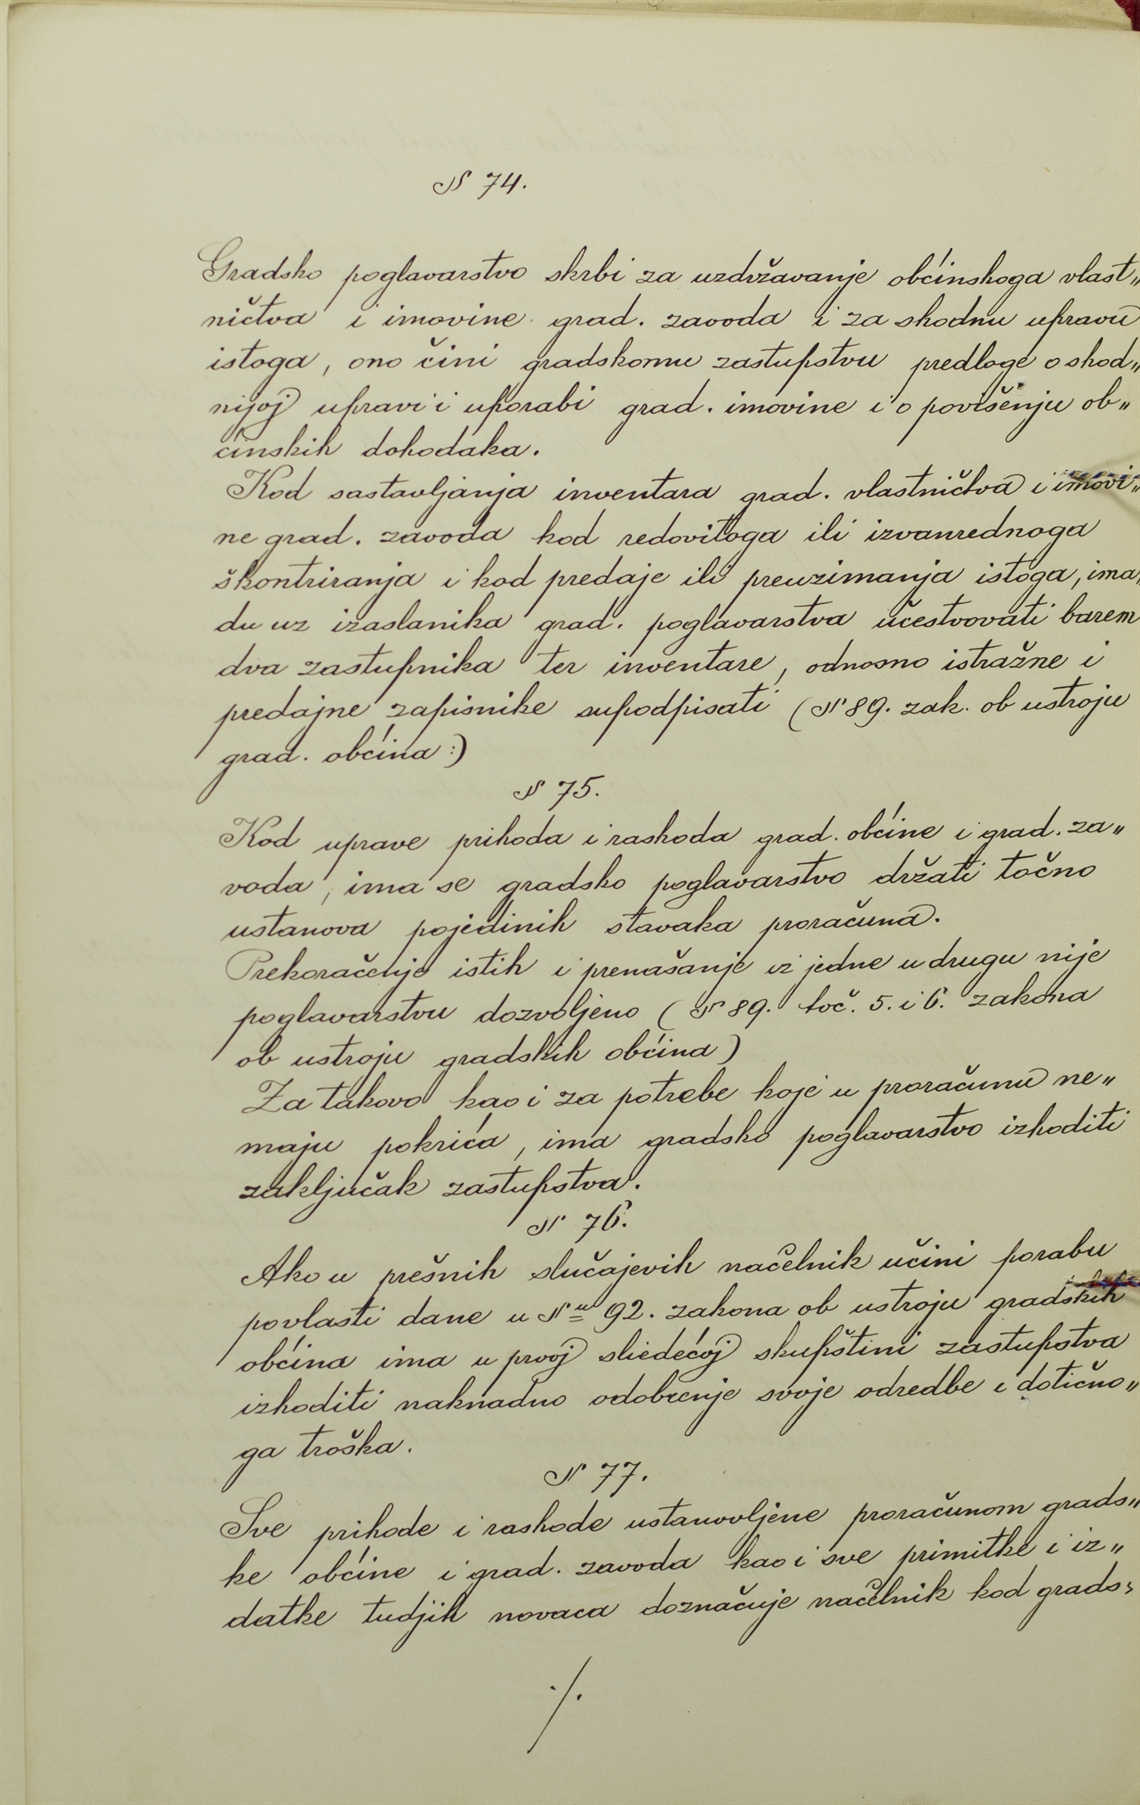 § 74.
Gradsko poglavarstvo skrbi za uzdržavanje obćinskoga vlast„
ničtva i imovine grad. zavoda i za shodnu upravu
istoga, ono čini gradskomu zastupstvu predloge o shod„
nijoj upravi i uporabi grad. imovine i o povišenju ob„
ćinskih dohodaka.
Kod sastavljanja inventara grad. vlastničtva i imovi„
ne grad. zavoda kod redovitoga ili izvanrednoga
škontriranja i kod predaje ili preuzimanja istoga, ima„
du uz izaslanika grad. poglavarstva učestvovati barem
dva zastupnika ter inventare, odnosno istražne i
predajne zapisnike supodpisati (§ 89. zak. ob ustroju
grad. obćina:)
§ 75.
Kod uprave prihoda i rashoda grad. obćine i grad. za„
voda, ima se gradsko poglavarstvo držati točno
ustanova pojedinih stavaka proračuna.
Prekoračenje istih i prenašanje iz jedne u drugu nije
poglavarstvu dozvoljeno (§ 89. toč. 5. i 6. zakona
ob ustroju gradskih obćina)
Za takovo kao i za potrebe koje u proračunu ne„
maju pokrića, ima gradsko poglavarstvo izhoditi
zaključak zastupstva.
§ 76.
Ako u prešnih slučajevih načelnik učini porabu
povlasti dane u §u 92. zakona ob ustroju gradskih
obćina ima u prvoj sliedećoj skupštini zastupstva
izhoditi naknadno odobrenje svoje odredbe i dotično„
ga troška.
§ 77.
Sve prihode i rashode ustanovljene proračunom grads„
ke obćine i grad. zavoda kao i sve primitke i iz„
datke tudjih novaca doznačuje načelnik kod grads„
./.